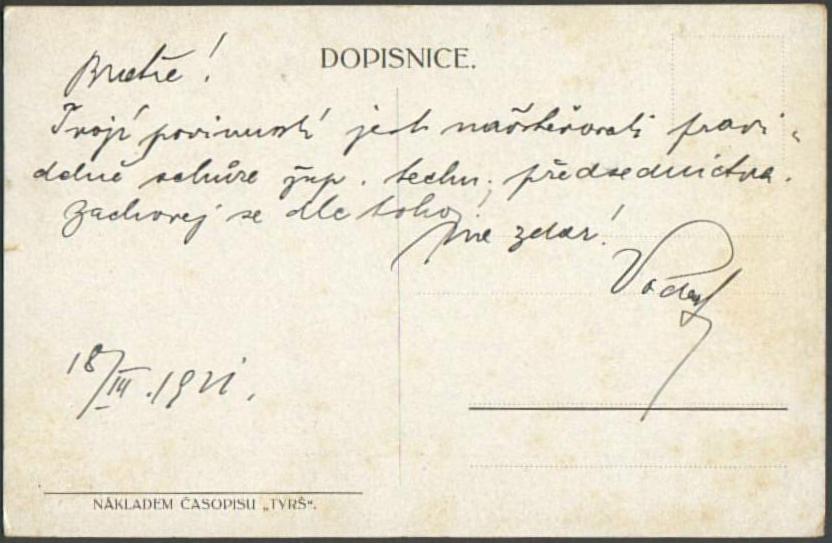 DOPISNICE.
Bratře!
Tvojí povinností jest navštěvovati pravi-
delně schůze žup. techn. předsednictva.
Zachovej se dle toho,
Na zdar!
18/III. 1921.
NÁKLADEM ČASOPISU „TYRŠ“.